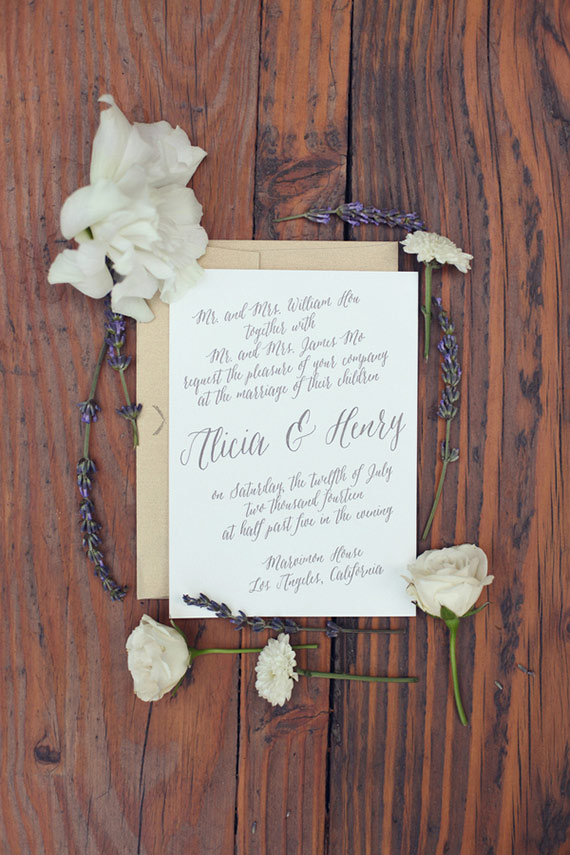 Mr. and Mrs. William Hou
together with
Mr. and Mrs. James Mo
request the pleasure of your company
at the marriage of their children
Alicia & Henry
on Saturday, the twelfth of July
two thousand fourteen
at half past five in the evening
Marvimon House
Los Angeles, California